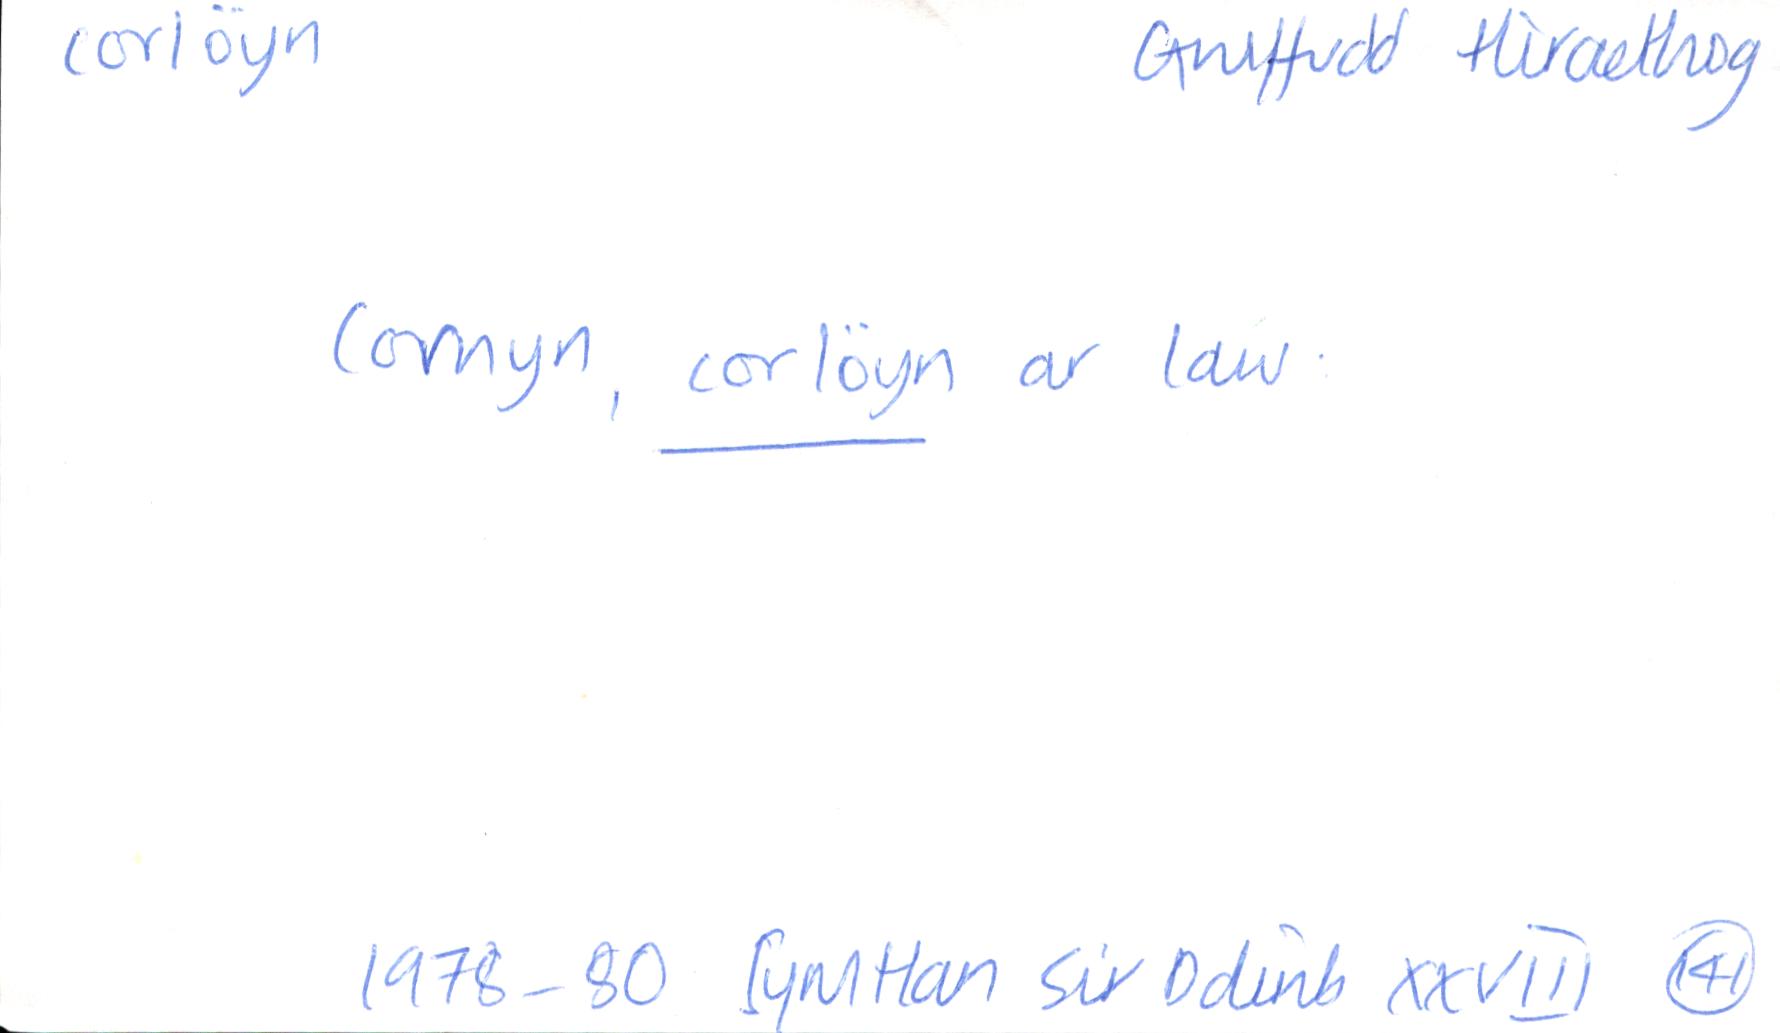 corlöyn Gruffudd Hiraethog
Cornyn, corlöyn ar law:
1978-80 CymHan Sir Ddinb XXVIII 141